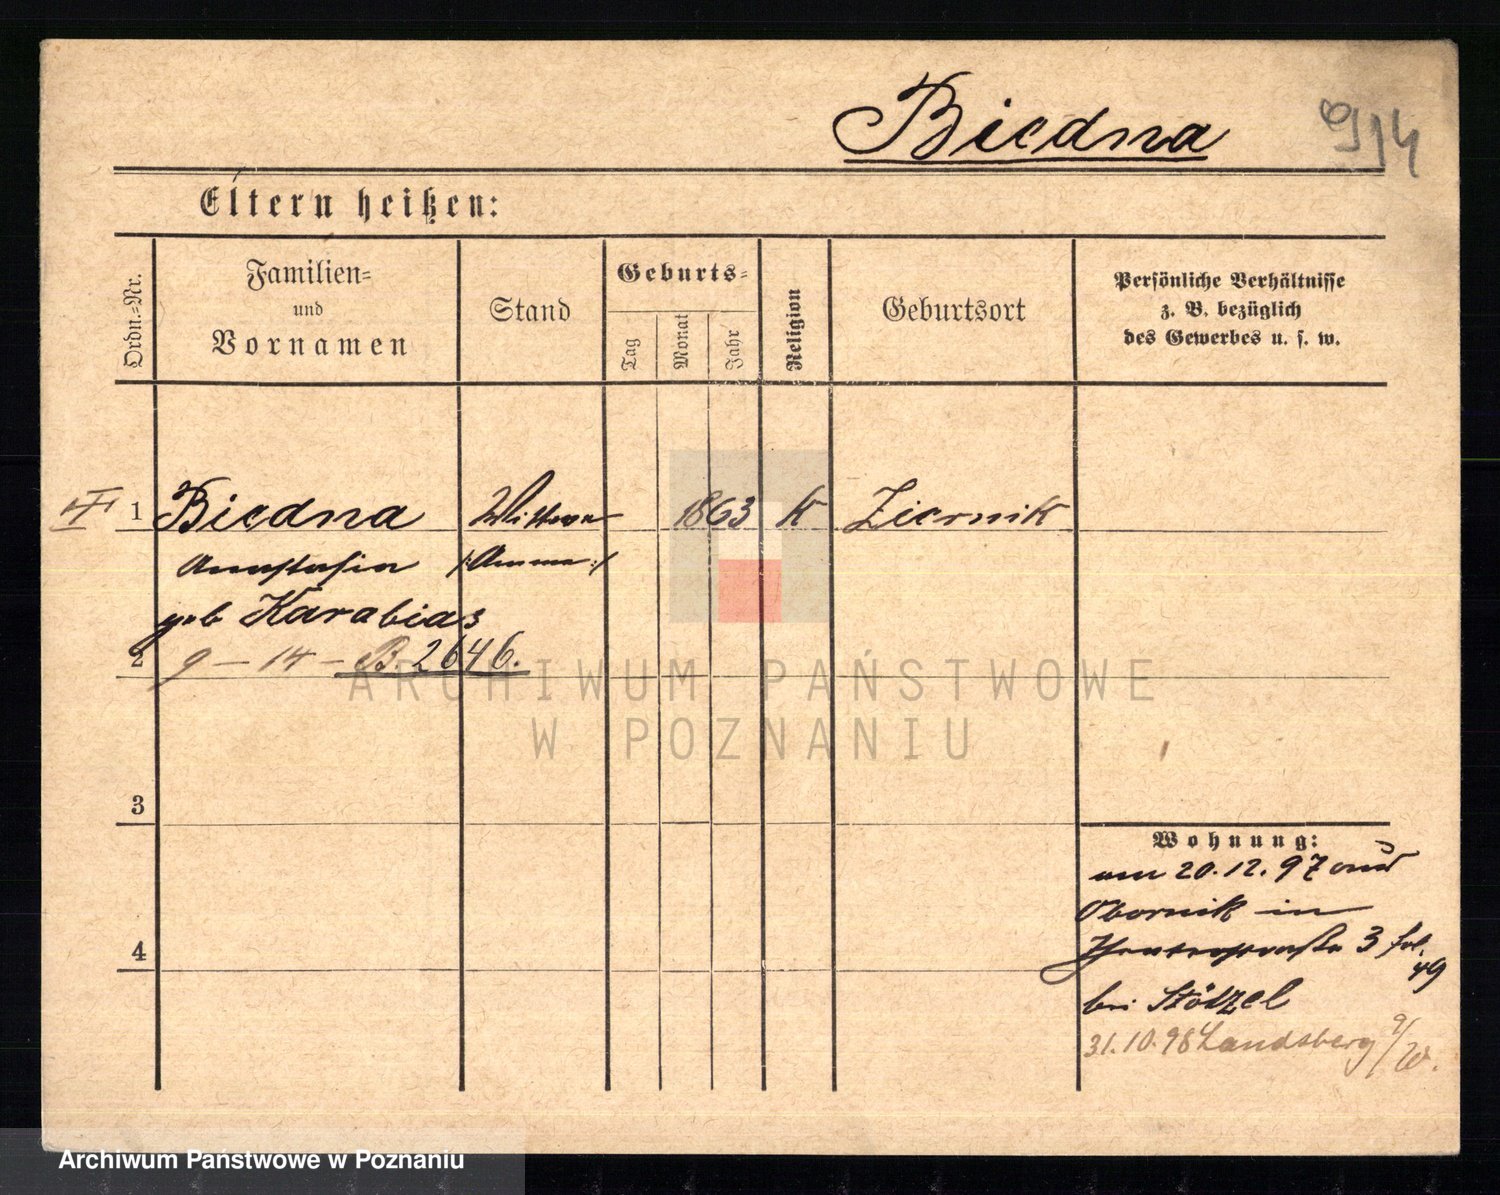 Biedna
914
Eltern heißen:
Ordn.-Nr.
Familien-
und
Vornamen
Stand
Geburts-
Tag
Monat
Jahr
Religion
Geburtsort
Persönliche Verhältnisse
z. B. bezüglich
des Gewerbes u. s. w.
1 Biedna Wittwe 1863 k Ziernik
Anastasia /:Amme:/
geb Karabias
2 9 – 14 – B. 2646.
ARCHIWUM PAŃSTWOWE
W POZNANIU
3
Wohnung:
am 20.12.97 aus
Obornik in
3 fol.
49
4
bei Stötzel
31.10.98 Landsberg a/W.
Archiwum Państwowe w Poznaniu